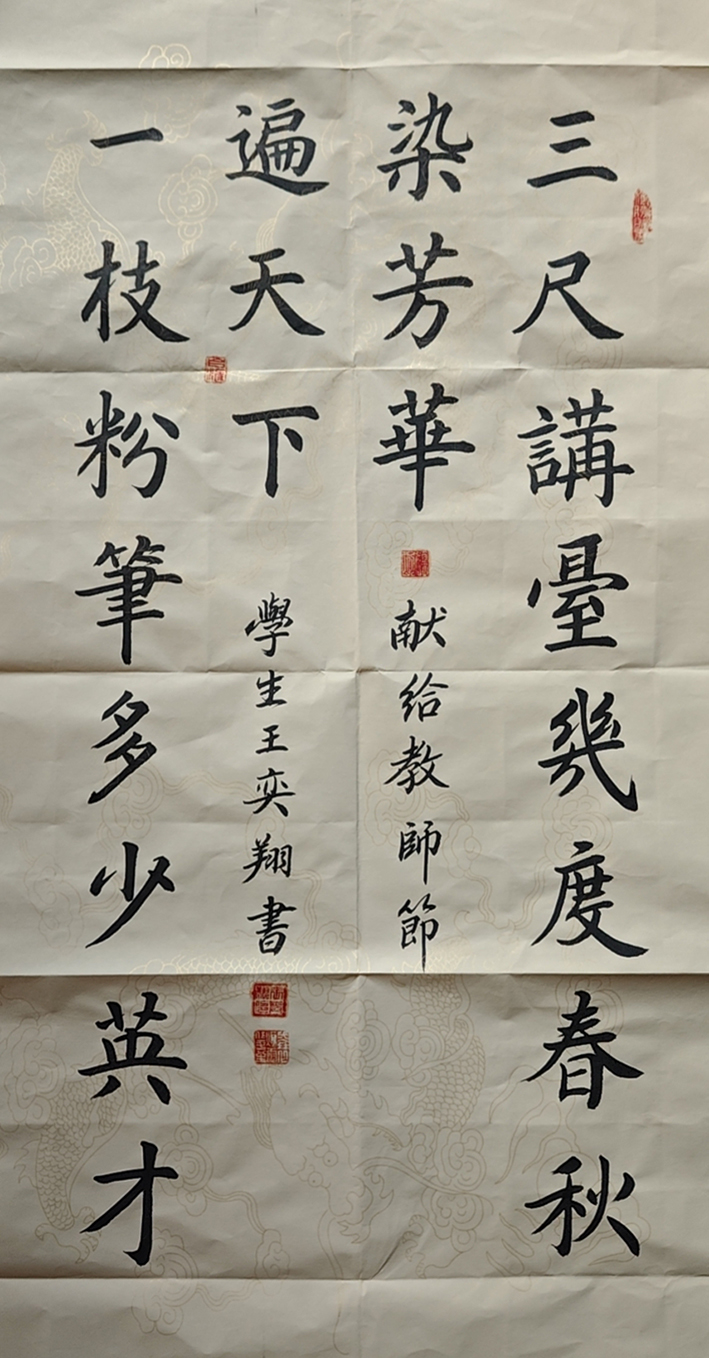 三尺講臺幾度春秋
染芳華
献給教師節
一枝粉筆多少英才
遍天下
學生王奕翔書